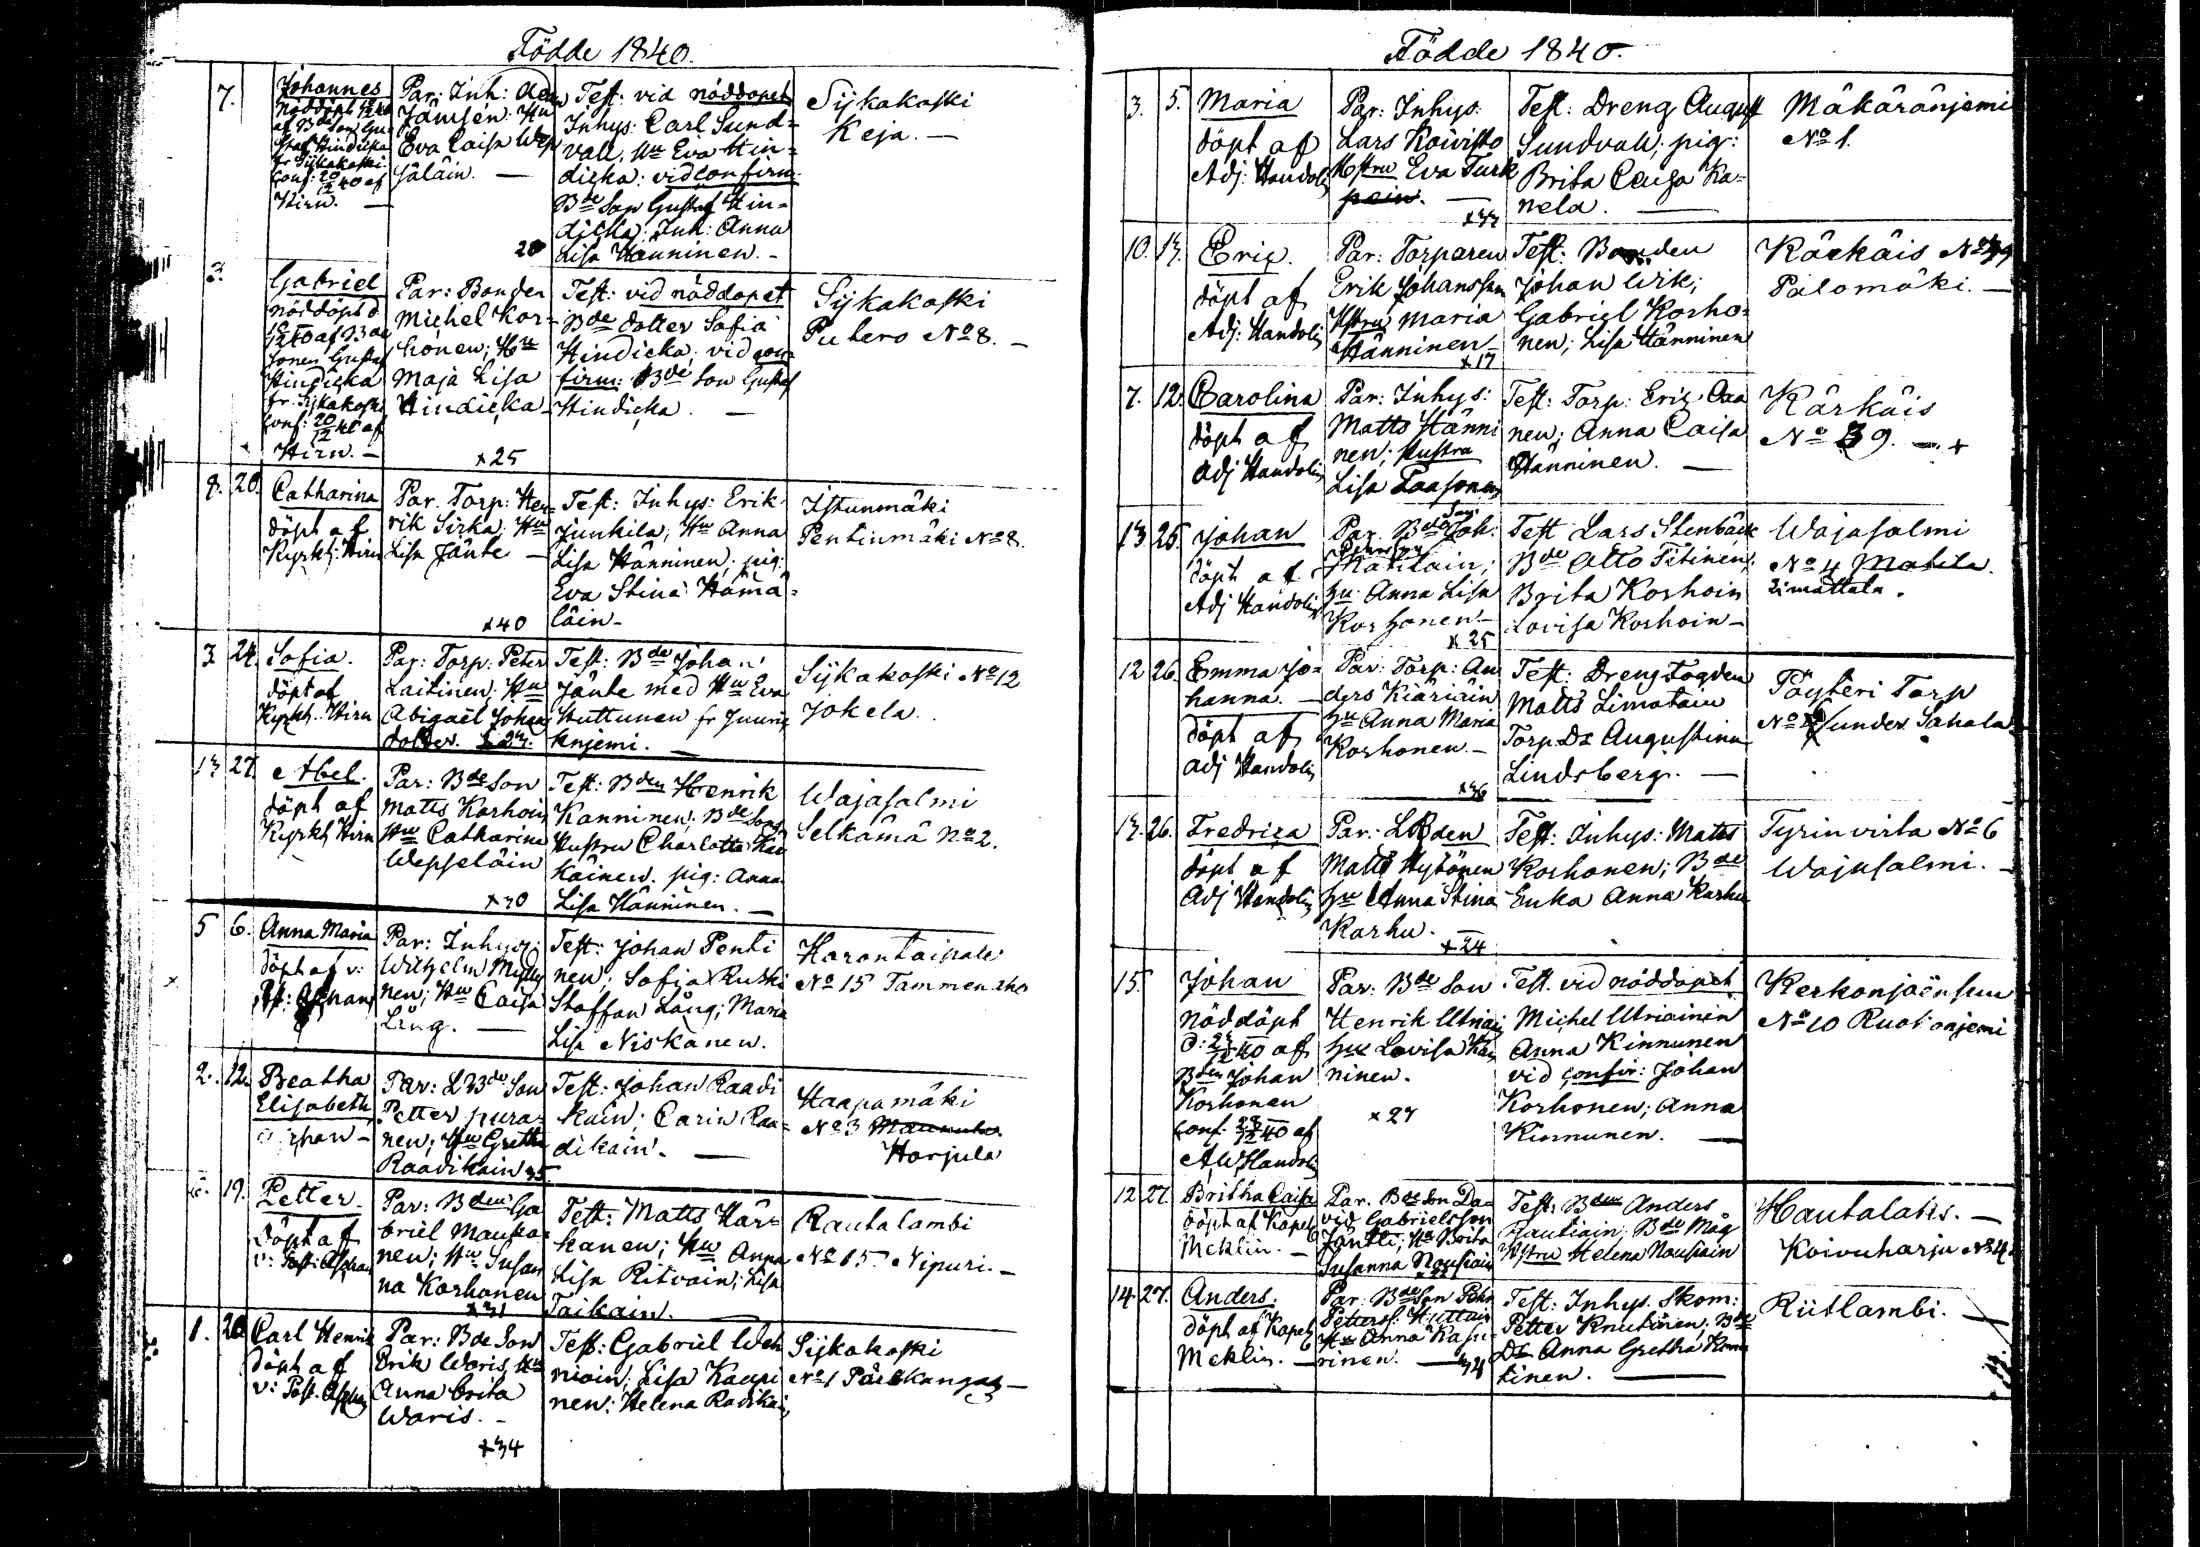 Födde 1840.
7.
Johannes
Nöddöpt
af Bde Son Gu-
staf Hindicka
fr Sijkakoski
conf: 20/12 40 af
Hirn.
Par: Inh:
Jämsén Hu
Eva Caisa Wep
säläin.
20
Test: vid nöddopet
Inhys: Carl Sund-
vall, Hu Eva Hin-
dicka: vid confirm
Bde Son Gustaf Hin-
dicka: Inh: Anna
Lisa Hänninen.
Sijkakoski
Keja.
3.
Gabriel
nöddöpt d
af Bde
Sonen Gustaf
Hindicka
fr. Sijkakoski
conf: 20/12 40 af
Hirn.
Par: Bonden
Michel Kor-
honen; Hu
Maja Lisa
Hindicka
x 25
Test: vid nöddopet
Bde dotter Sofia
Hindicka; vid con
firm: Bde Son Gustaf
Hindicka.
Sijkakoski
Putero No 8.
8. 20.
Catharina
döpt af
Kyrkh: Hirn
Par. Torp: Hen-
rik Sirka, Hu
Lisa Jänte
x 40
Test: Inhys: Erik
Junkila; Hu Anna
Lisa Hänninen, pig:
Eva Stina Hämä-
läin
Istunmäki
Pentinmäki No 8.
3 24.
Sofia.
döpt af
Kyrkh. Hirn
Par: Torp. Peter
Laitinen; Hu
Abigaël Johans
dotter.
Test: Bde Johan
Jänte med Hu Eva
Huttunen fr
knjemi.
Sijkakoski No 12
Jokela.
13 27.
Abel.
döpt af
Kyrkh Hirn
Par: Bde Son
Matts Korhoin
Hu Catharina
Wepseläin
x 30
Test: Bden Henrik
Kanninen; Bde Sons
Hustru Charlotta
käinen. pig: Anna
Lisa Hänninen.
Wajasalmi
Selkämä No 2.
5 6.
Anna Maria
döpt af v:
Par: Inhys:
Wilhelm Mylly
nen; Hu Caisa
Lång.
Test: Johan Penti
nen; Sofia Ruski
Staffan Lång; Maria
Lisa Niskanen.
Horontaipale
No 15 Tammenaho
2. 12.
Beatha
Elisabeth
Par: LBde Son
Petter pura-
nen; Hu Gretha
Raadikain 35.
Test: Johan Raadi
kain; Carin Raa-
dikain.
Haapamäki
No 3
Harjula
19.
Petter.
döpt af
v: Past: Aschan
Par: Bden Ga
briel Mauko-
nen; Hu Susan
na Korhonen
x 31
Test: Matts Här-
kanen; Hu Anna
Lisa Ritvain; Lisa
Taikain.
Rautalambi
No 15 Nipuri.
1. 20.
Carl Henrik
döpt af
v: Past. Aschan
Par: Bde Son
Erik Waris, Hu
Anna Brita
Waris.
x 34
Test: Gabriel Weh
niäin; Lisa Kaapi
nen: Helena Radikain
Sijkakoski
No 1 Pääskangas
Födde 1840.
3. 5.
Maria
döpt af
Adj: Handolin
Par: Inhys:
Lars Koivisto
Hstru Eva Turk
pain.
Test: Dreng August
Sundvall; pig:
Brita Caisa Ka-
nela.
Mäkäränjemi
No 1.
10. 13.
Eric.
döpt af
Adj: Handolin
Par: Torparen
Erik Johansson
Hstru Maria
Hänninen
x 17
Test: Bonden
Johan Wik;
Gabriel Korho-
nen; Lisa Hänninen
Kärkäis No 39
Palomäki.
7. 12.
Carolina
döpt af
Adj Handolin
Par: Inhys:
Matts Hänni
nen; Hustru
Lisa Laasonen
Test: Torp: Eric Oaa
nen; Anna Caisa
Hänninen.
Kärkäis
No 39.
13. 25.
Johan
döpt af
Adj Handolin
Par. Bde Son Joh:
Matilain;
hu: Anna Lisa
Korhonen
x 25
Test Lars Stenbäck
Bde Otto Titinen;
Brita Korhoin
Lovisa Korhoin
Wajasalmi
No 4 Matila.
Limattala.
12 26.
Emma Jo-
hanna.
döpt af
Adj Handolin
Par: Torp: An
ders Kiäriäin
hu Anna Maria
Korhonen.
x 36
Test: Dreng Fogden
Matts Limatain
Torp. Dr Augustina
Lindsberg.
Pöyteri Torp
under Sahala
13. 26.
Fredrica
döpt af
Adj Handolin
Par: LBden
Matts Hytönen
hu Anna Stina
Karhu.
x 24
Test: Inhys: Matts
Korhonen; Bde
Enka Anna Karhu
Tyrinvirta No 6
Wajasalmi.
15.
Johan
Nöddöpt
d: 27/12 40 af
Bden Johan
Korhonen
conf. 28/12 40 af
AW Handolin
Par: Bde Son
Henrik Utriain
hu Lovisa Kin
ninen.
x 27
Test. vid nöddopet
Michel Utriainen
Anna Kinnunen
vid confir: Johan
Korhonen; Anna
Kinnunen.
Kerkonjoensuu
No 10 Ruotonjemi
12 27.
Britha Caisa
döpt af Kapel
Meklin.
Par. Bde Son Da-
vid Gabrielsson
Jäntti; Hu Brita
Susanna Nousiain
Test: Bden Anders
Hautiain; Bde Måg
Hstru Helena Nousiain
Hautalahs.
Koivuharju No 4.
14 27.
Anders.
döpt af Kapel
Meklin.
Par: Bde Son Pehr
Petters: Huttain
Hu Anna Kasu-
rinen. 34
Test: Inhys. Skom:
Petter Knutinen; Bde
Dr Anna Gretha
tinen.
Riitlambi.